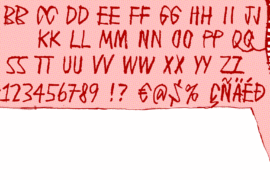 BB CC DD EE FF GG HH II JJ
KK LL MM NN OO PP QQ
SS TT UU VV WW XX YY ZZ
123456789 !? €@$% ÇÑÄÉÐ